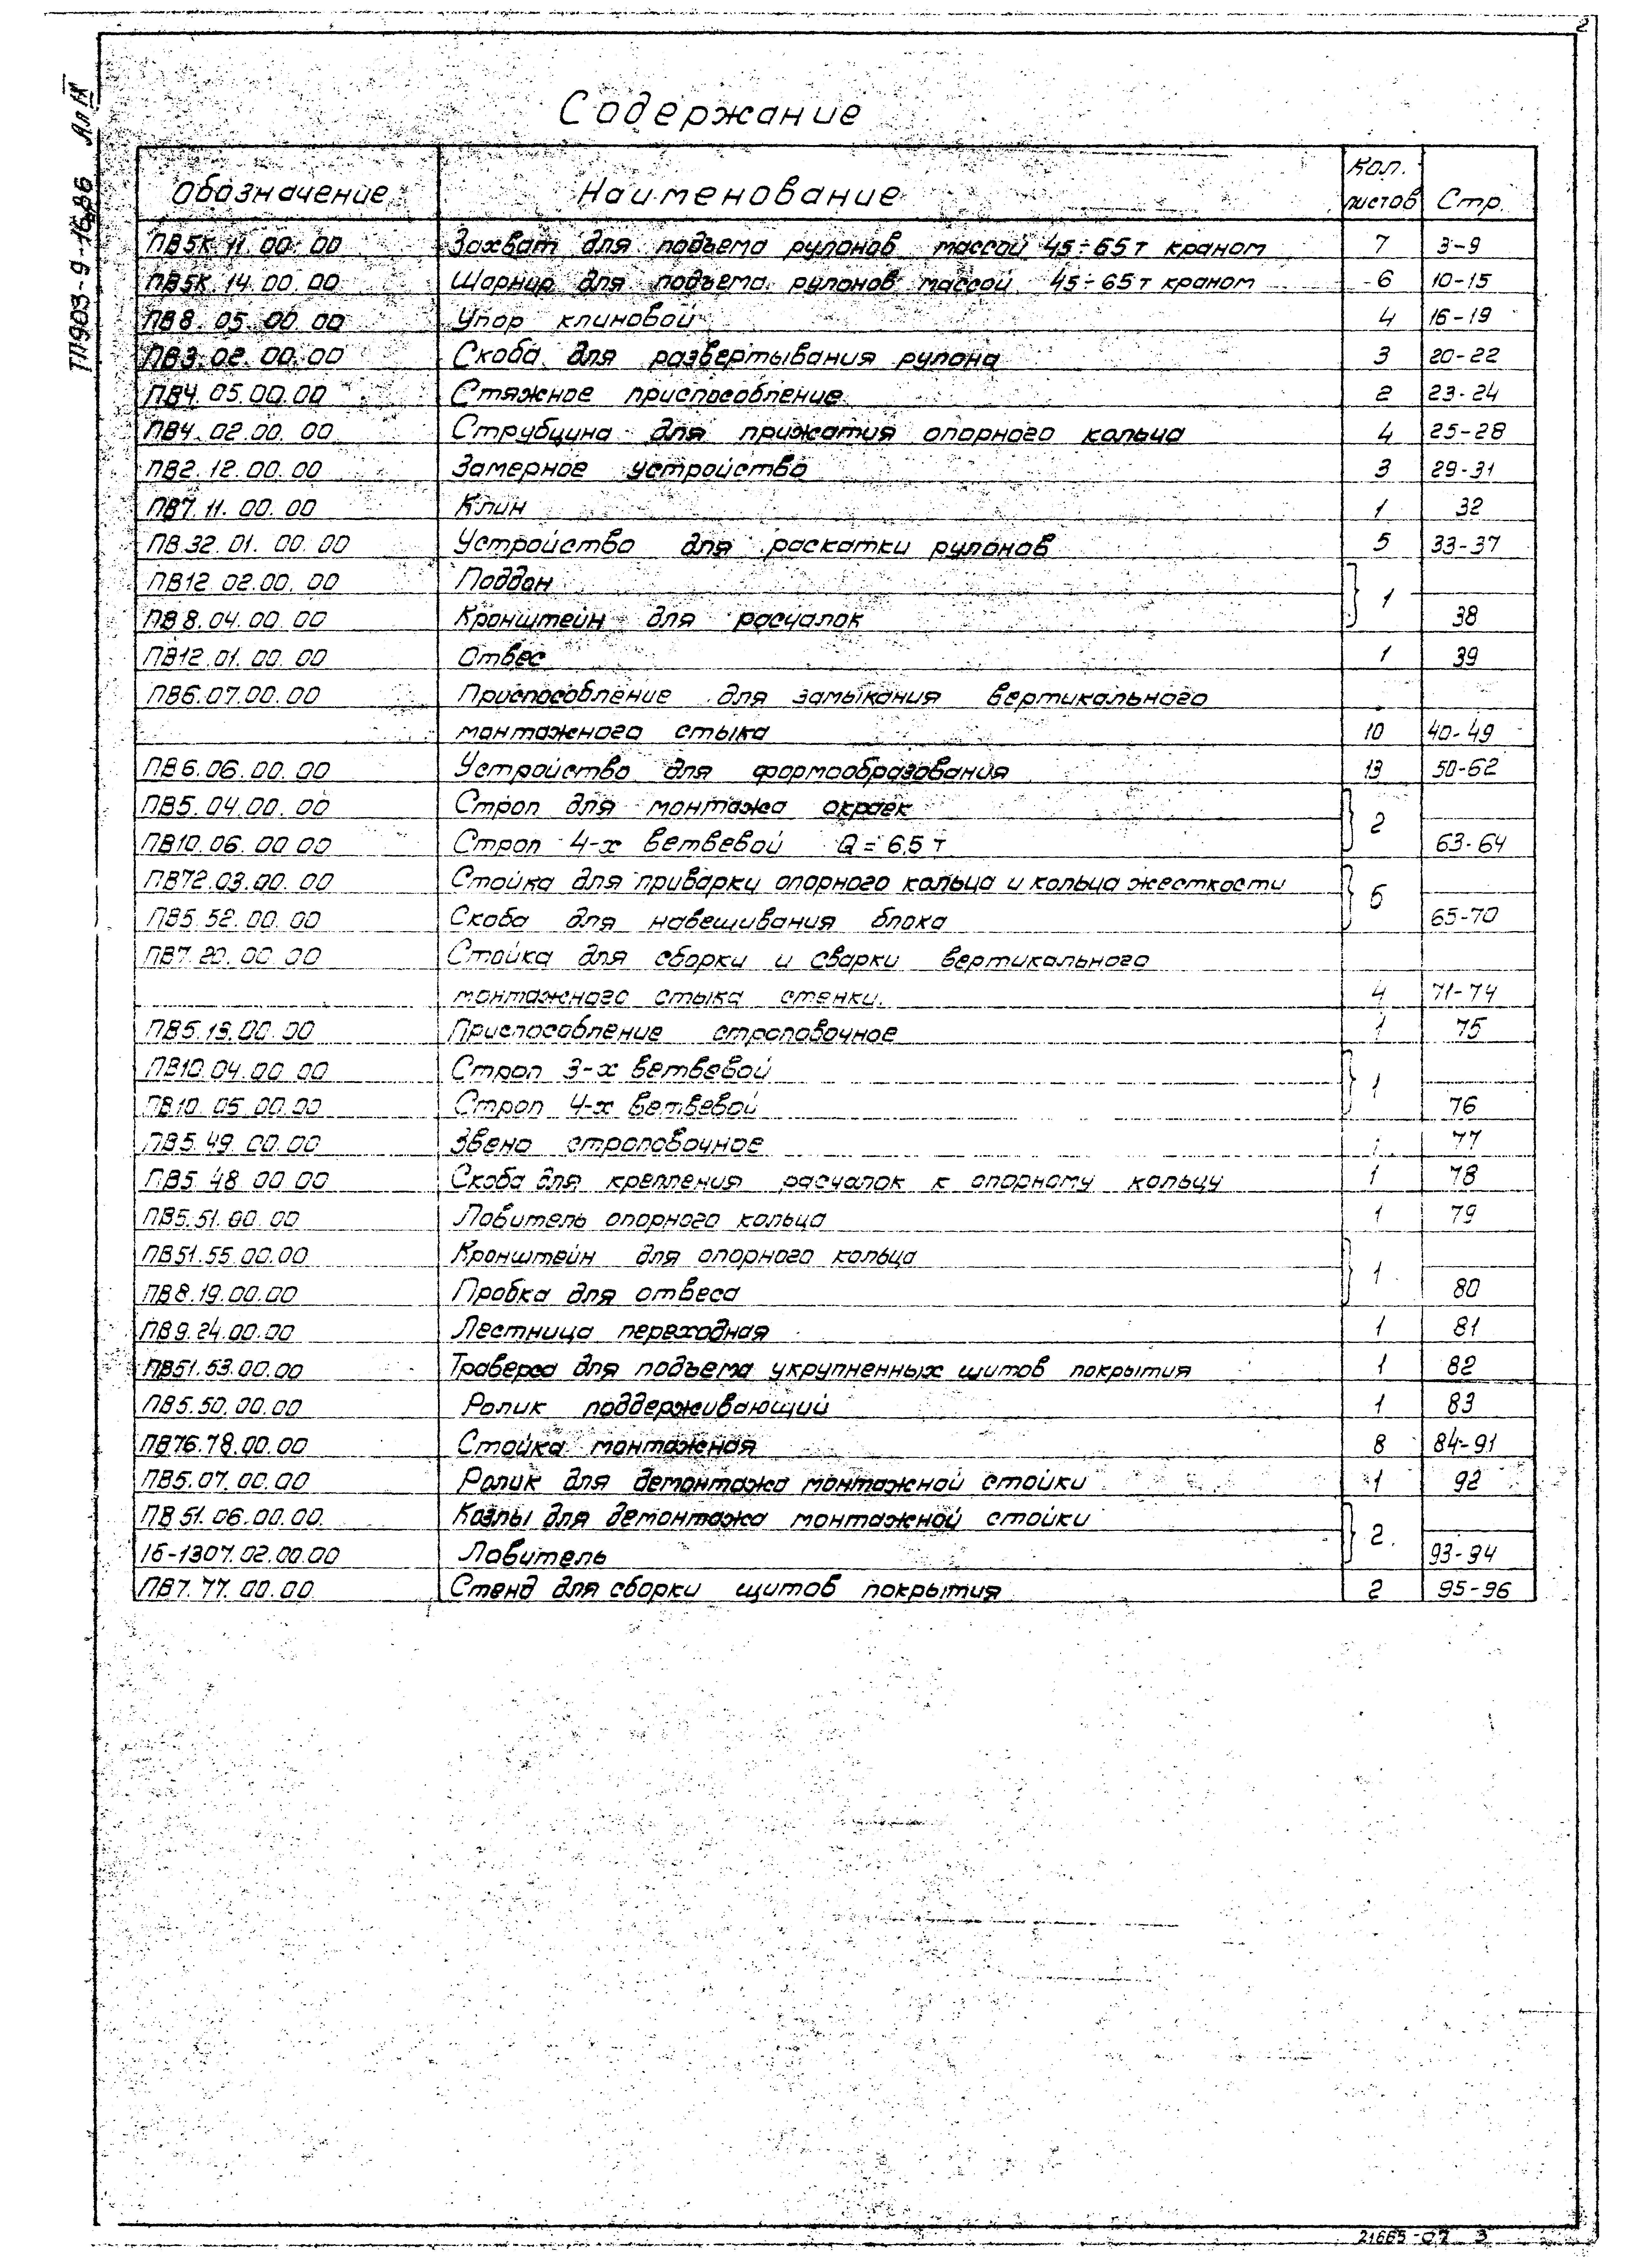 2
ТП903-9-16.86 Ал IX
Содержание
Обозначение Наименование Кол. листов Стр.
ПВ5К.11.00.00 Захват для подъема рулонов массой 45÷65т краном 7 3-9
ПВ5К.14.00.00 Шарнир для подъема рулонов массой 45÷65т краном 6 10-15
ПВ8.05.00.00 Упор клиновой 4 16-19
ПВ3.02.00.00 Скоба для развертывания рулона 3 20-22
ПВ4.05.00.00 Стяжное приспособление 2 23-24
ПВ4.02.00.00 Струбцина для прижатия опорного кольца 4 25-28
ПВ2.12.00.00 Замерное устройство 3 29-31
ПВ7.11.00.00 Клин 1 32
ПВ.32.01.00.00 Устройство для раскатки рулонов 5 33-37
ПВ12.02.00.00 Поддон
ПВ8.04.00.00 Кронштейн для расчалок 1 38
ПВ12.01.00.00 Отвес 1 39
ПВ6.07.00.00 Приспособление для замыкания вертикального
монтажного стыка 10 40-49
ПВ6.06.00.00 Устройство для формообразования 13 50-62
ПВ5.04.00.00 Строп для монтажа окраек
ПВ10.06.00 00 Строп 4-х ветвевой Q=6,5 т 2 63-64
ПВ72.03.00.00 Стойка для приварки опорного кольца и кольца жесткости
ПВ5.52.00.00 Скоба для навешивания блока 6 65-70
ПВ7.20.00.00 Стойка для сборки и сварки вертикального
монтажного стыка стенки. 4 71-74
ПВ5.13.00.00 Приспособление строповочное 1 75
ПВ10.04.00.00 Строп 3-х ветвевой
ПВ10.05.00.00 Строп 4-х ветвевой 1 76
ПВ5.49.00.00 Звено строповочное 1 77
ПВ5.48.00.00 Скоба для крепления расчалок к опорному кольцу 1 78
ПВ5.51.00.00 Ловитель опорного кольца 1 79
ПВ51.55.00.00 Кронштейн для опорного кольца
ПВ8.19.00.00 Пробка для отвеса 1 80
ПВ9.24.00.00 Лестница переходная 1 81
ПВ51.53.00.00 Траверса для подъема укрупненных щитов покрытия 1 82
ПВ5.50.00.00 Ролик поддерживающий 1 83
ПВ76.78.00.00 Стойка монтажная 8 84-91
ПВ5.07.00.00 Ролик для демонтажа монтажной стойки 1 92
ПВ51.06.00.00. Козлы для демонтажа монтажной стойки
16-1307.02.00.00 Ловитель 2. 93-94
ПВ7.77.00.00 Стенд для сборки щитов покрытия 2 95-96
21665-07 3